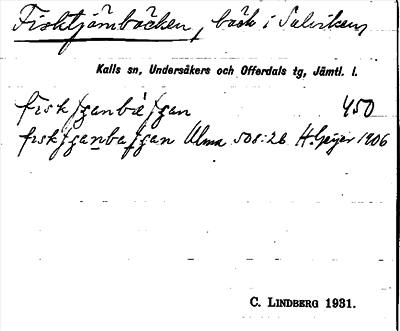 Fisktjärnbäcken, bäck i Salviken,
Kalls sn, Undersåkers och Offerdals tg, Jämtl. l.
450
Ulma 508:26 H. Geijer 1906
C. LINDBERG 1931.